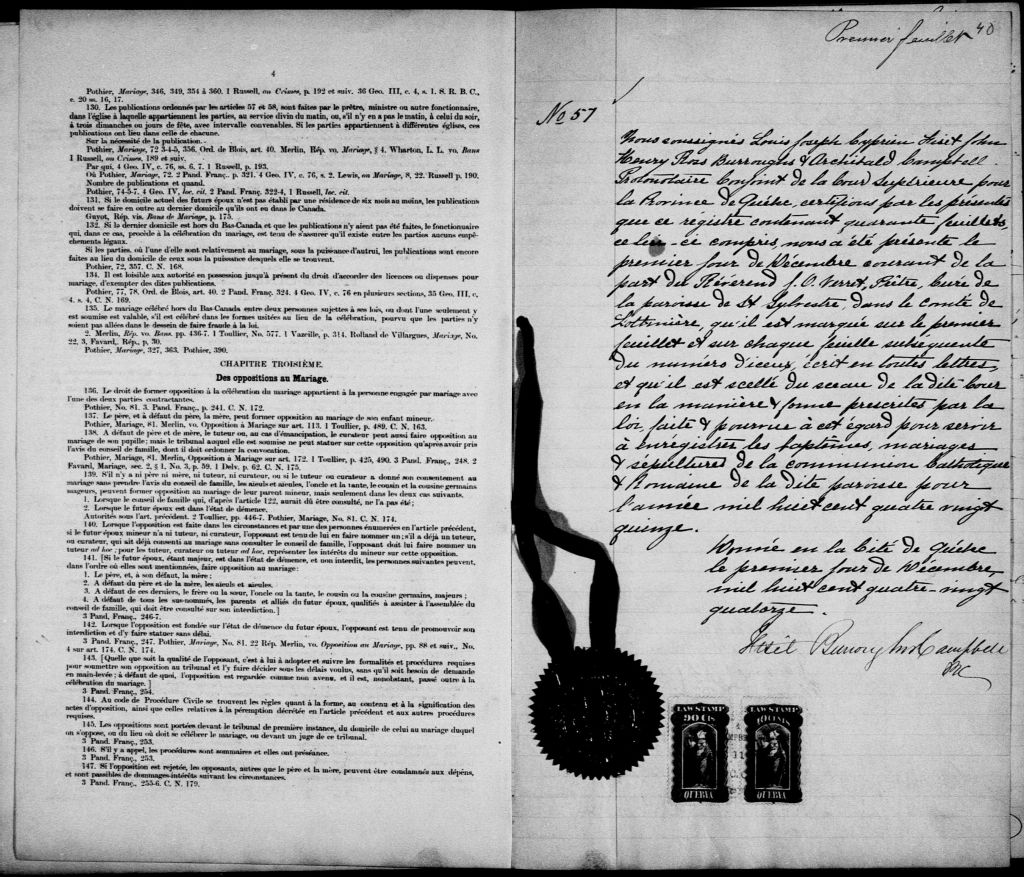 4
Pothier, Mariage, 346, 349, 354 à 360. 1 Russell, on Crimes, p. 192 et suiv. 36 Geo. III, c. 4, s. 1. S. R. B. C.,
c. 20 ss. 16, 17.
130. Les publications ordonnés par les articles 57 et 58, sont faites par le prêtre, ministre ou autre fonctionnaire,
dans l'église à laquelle appartiennent les parties, au service divin du matin, ou, s'il n'y en a pas le matin, à celui du soir,
à trois dimanches ou jours de fête, avec intervalle convenable. Si les parties appartiennent à différentes églises, ces
publications ont lieu dans celle de chacune.
Sur la nécessité de la publication. .
Pothier, Mariage, 72 3-4-5, 356, Ord. de Blois, art. 40. Merlin, Rép. vo. Mariage, § 4. Wharton, L. L. vo. Bans
1 Russell, on Crimes, 189 et suiv.
Par qui, 4 Geo. IV, c. 76, ss. 6, 7. 1 Russell, p. 193.
Où Pothier, Mariage, 72. 2 Pand. Franç.. p. 321. 4 Geo. IV, c. 76, s. 2. Lewis, on Mariage, 8, 22. Russell p. 190.
Nombre de publications et quand.
Pothier, 74-5-7. 4 Geo. IV, loc. cit. 2 Pand. Franç. 322-4, 1 Russell, loc. cit.
131. Si le domicile actuel des futurs époux n'est pas établi par une résidence de six mois au moins, les publications
doivent se faire en outre au dernier domicile qu'ils ont eu dans le Canada.
Guyot, Rép. vis. Bans de Mariage, p. 175.
132. Si le dernier domicile est hors du Bas-Canada et que les publications n'y aient pas été faites, le fonctionnaire
qui, dans ce cas, procède à la célébration du mariage, est tenu de s'assurer qu'il existe entre les parties aucun empê-
chements légaux.
Si les parties, ou l'une d'elle sont relativement au mariage, sous la puissance d'autrui, les publications sont encore
faites au lieu du domicile de ceux sous la puissance desquels elle se trouvent.
Pothier, 72, 357. C. N. 168.
134. Il est loisible aux autorité en possession jusqu'à présent du droit d'accorder des licences ou dispenses pour
mariage, d'exempter des dites publications.
Pothier, 77, 78. Ord. de Blois, art. 40. 2 Pand. Franç. 324. 4 Geo. IV, c. 76 en plusieurs sections, 35 Geo. III, c,
4. s. 4, C. N. 169.
135. Le mariage célébré hors du Bas-Canada entre deux personnes sujettes à ses lois, ou dont l'une seulement y
est soumise est valable, s'il est célébré dans les formes usitées au lieu de la célébration, pourvu que les parties n'y
soient pas allées dans le dessein de faire fraude à la loi.
2. Merlin, Rép. vo. Bans, pp. 436-7. 1 Toulier, No. 577. 1 Vazeille, p. 314. Rolland de Villargues, Mariage, No.
22, 3, Favard, Rép., p. 30.
Pothier, Mariage, 327, 363. Pothier, 390.
CHAPITRE TROISIÈME.
Des oppositions au Mariage.
136. Le droit de former opposition à la célébration du mariage appartient à la personne engagée par mariage avec
l'une des deux parties contractantes.
Pothier, No. 81. 3. Pand. Franç., p. 241. C. N. 172.
137. Le père, et à défaut du père, la mère, peut former opposition au mariage de son enfant mineur.
Pothier, Mariage, 81. Merlin, vo. Opposition à Mariage sur art. 113. 1 Toullier, p. 489. C. N. 163.
138. A défaut de père et de mère, le tuteur ou, au cas d'émancipation, le curateur peut aussi faire opposition au
mariage de son pupille; mais le tribunal auquel elle est soumise ne peut statuer sur cette opposition qu'après avoir pris
l'avis du conseil de famille, dont il doit ordonner la convocation.
Pothier, Mariage, 81. Merlin, Opposition à Mariage sur art. 172. 1 Toullier, p. 425, 490. 3 Pand. Franç., 248. 2
Favard, Mariage, sec. 2, § 1. No. 3, p. 59. 1 Delv, p. 62. C. N. 175.
139. S'il n'y a ni père ni mère, ni tuteur, ni curateur, ou si le tuteur ou curateur a donné son consentement au
mariage sans prendre l'avis du conseil de famille, les aïeuls et aïeules, l'oncle et la tante, le cousin et la cousine germains
mageurs, peuvent former opposition au mariage de leur parent mineur, mais seulement dans les deux cas suivants.
1. Lorsque le conseil famille qui, d'après l'article 122, aurait dû être consulté, ne l'a pas été;
2. Lorsque le futur époux est dans l'état de démence.
Autorités sous l'art. précédent. 2 Toullier, pp. 446-7. Pothier, Mariage, No. 81. C. N. 174.
140. Lorsque l'opposition est faite dans les circonstances et par une des personnes énumérées en l'article précédent,
si le futur époux mineur n'a ni tuteur, ni curateur, l'opposant est tenu de lui en faire nommer un; s'il a déjà un tuteur,
ou curateur, qui ait déjà consenti au mariage sans consulter le conseil de famille, l'opposant doit lui faire nommer un
tuteur ad hoc; pour les tuteur, curateur ou tuteur ad hoc, représenter les intérêts du mineur sur cette opposition.
141. [Si le futur époux, étant majeur, est dans l'état de démence, et non interdit, les personnes suivantes peuvent,
dans l'ordre où elles sont mentionnées, faire opposition au mariage:
1. Le père, et, à son défaut, la mère;
2. A défaut du père et de la mère, les aïeuls et aïeules.
3. A défaut de ces derniers, le frère ou la sœur, l'oncle ou la tante, le cousin ou la cousine germains, majeurs;
4. A défaut de tous les sus-nommés, les parents et alliés du futur époux, qualifiés à assister à l'assemblée du
conseil de famille, qui doit être consulté sur son interdiction.]
3 Pand. Franç., 246-7.
142. Lorsque l'opposition est fondée sur l'état de démence du futur époux, l'opposant est tenu de promouvoir son
interdiction et d'y faire statuer sans délai.
3 Pand. Franç., 247. Pothier, Mariage, No. 81. 22 Rép. Merlin, vo. Opposition au Mariage, pp. 88 et suiv.. No.
4 sur art. 174. C. N. 174.
143. [Quelle que soit la qualité de l'opposant, c'est à lui à adopter et suivre les formalités et procédures requises
pour soumettre son opposition au tribunal et l'y faire décider sous les délais voulus, sans qu'il soit besoin de demande
en main-levée; à défaut de quoi, l'opposition est regardée comme non avenu, et il est, nonobstant, passé outre à la
célébration du mariage.]
3 Pand. Franç., 254.
144. Au code de Procédure Civile se trouvent les règles quant à la forme, au contenu et à la signification des
actes d'opposition, ainsi que celles relatives à la péremption décrétée en l'article précédent et aux autres procédures
requises.
145. Les oppositions sont portées devant le tribunal de première instance, du domicile de celui au mariage duquel
on s'oppose, ou du lieu où doit se célébrer le mariage, ou devant un juge de ce tribunal.
3 Pand. Franç., 253.
146. S'il y a appel, les procédures sont sommaires et elles ont préséance.
3 Pand. Franç., 253.
147. Si l'opposition est rejetée, les opposants, autres que le père et la mère, peuvent être condamnés aux dépens,
et sont passibles de dommages-intérêts suivant les circonstances.
3 Pand. Franç., 255-6. C. N. 179.
Premier feuillet 40
No 57
Nous soussignés Louis Joseph Cyprien Fiset John
Henry Ross Burroughs & Archibald Campbell
Protonotaire Conjoint de la Cour Supérieure pour
la Province de Québec, certifions par les présentes
que ce régistre contenant quarante feuillets,
celui-ci compris, nous a été présenté le
premier jour de Décembre courant de la
part du Révérend J. O. Verret, Prêtre, Curé de
la paroisse de St Sylvestre, dans le comté de
Lotbinière, qu'il est marqué sur le premier
feuillet et sur chaque feuille subséquente
du numéro d'iceux, écrit en toutes lettres,
et qu'il est scellé du sceau de la dite Cour
en la manière & forme prescrites par la
loi, faite & pourvue à cet égard pour servir
à enregistrer les baptêmes, mariages
& sépultures de la communion Catholique
& Romaine de la dite paroisse pour
l'année mil huit cent quatre vingt
quinze.
Donné en la Cité de Québec
le premier jour de Décembre,
mil huit cent quatre-vingt
quatorze.
Fiset Burroughs & Campbell
PSC
LAW STAMP LAW STAMP
90 CTS
QUEBEC QUEBEC